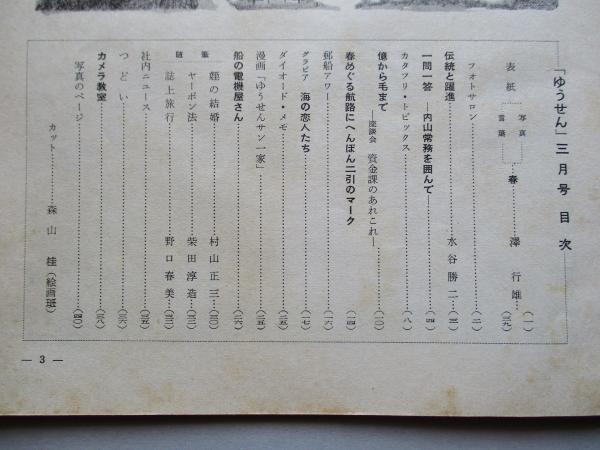 「ゆうせん」三月号 目次
表紙 写真 春 澤行雄 (一)
言葉 (三九)
フォトサロン (二)
伝統と躍進 水谷勝二 (三)
一問一答 ―内山常務を囲んで― (四)
カタフリ・トピックス (八)
億から毛まで ―座談会 資金課のあれこれ― (一〇)
春めぐる航路にへんぽん二引のマーク (一四)
郵船アワー (一六)
グラビア 海の恋人たち (一七)
ダイオード・メモ (二五)
漫画「ゆうせんサン一家」 (二五)
船の電機屋さん (二六)
随筆
姪の結婚 村山正三 (三〇)
ヤーポン法 柴田淳造 (三一)
誌上旅行 野口春美 (三三)
社内ニュース (三五)
つどい (三六)
カメラ教室 (三八)
写真のページ (四〇)
カット 森山桂(絵画班)
― 3 ―